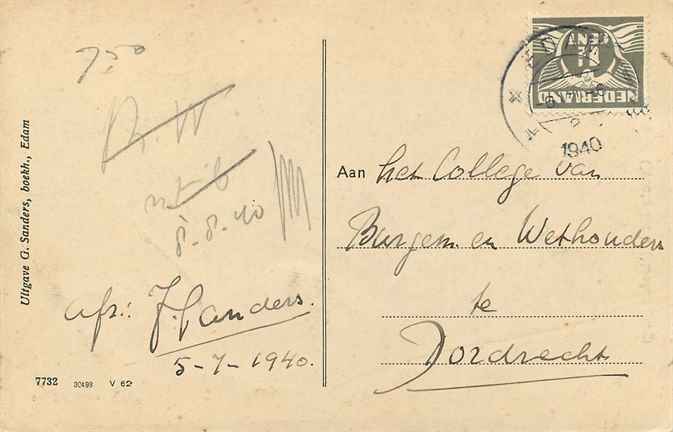 7,50
B. W
8-8-40
afz.: J. Sanders.
5-7-1940.
7732 30493 V 62
Uitgave G. Sanders, boekh., Edam
NEDERLAND
CENT
1940
Aan het College van
Burgem. en Wethouders
te
Dordrecht